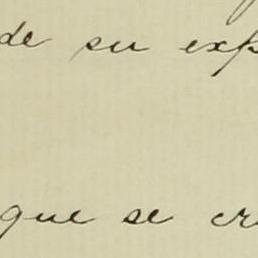 de su exp
que se cr